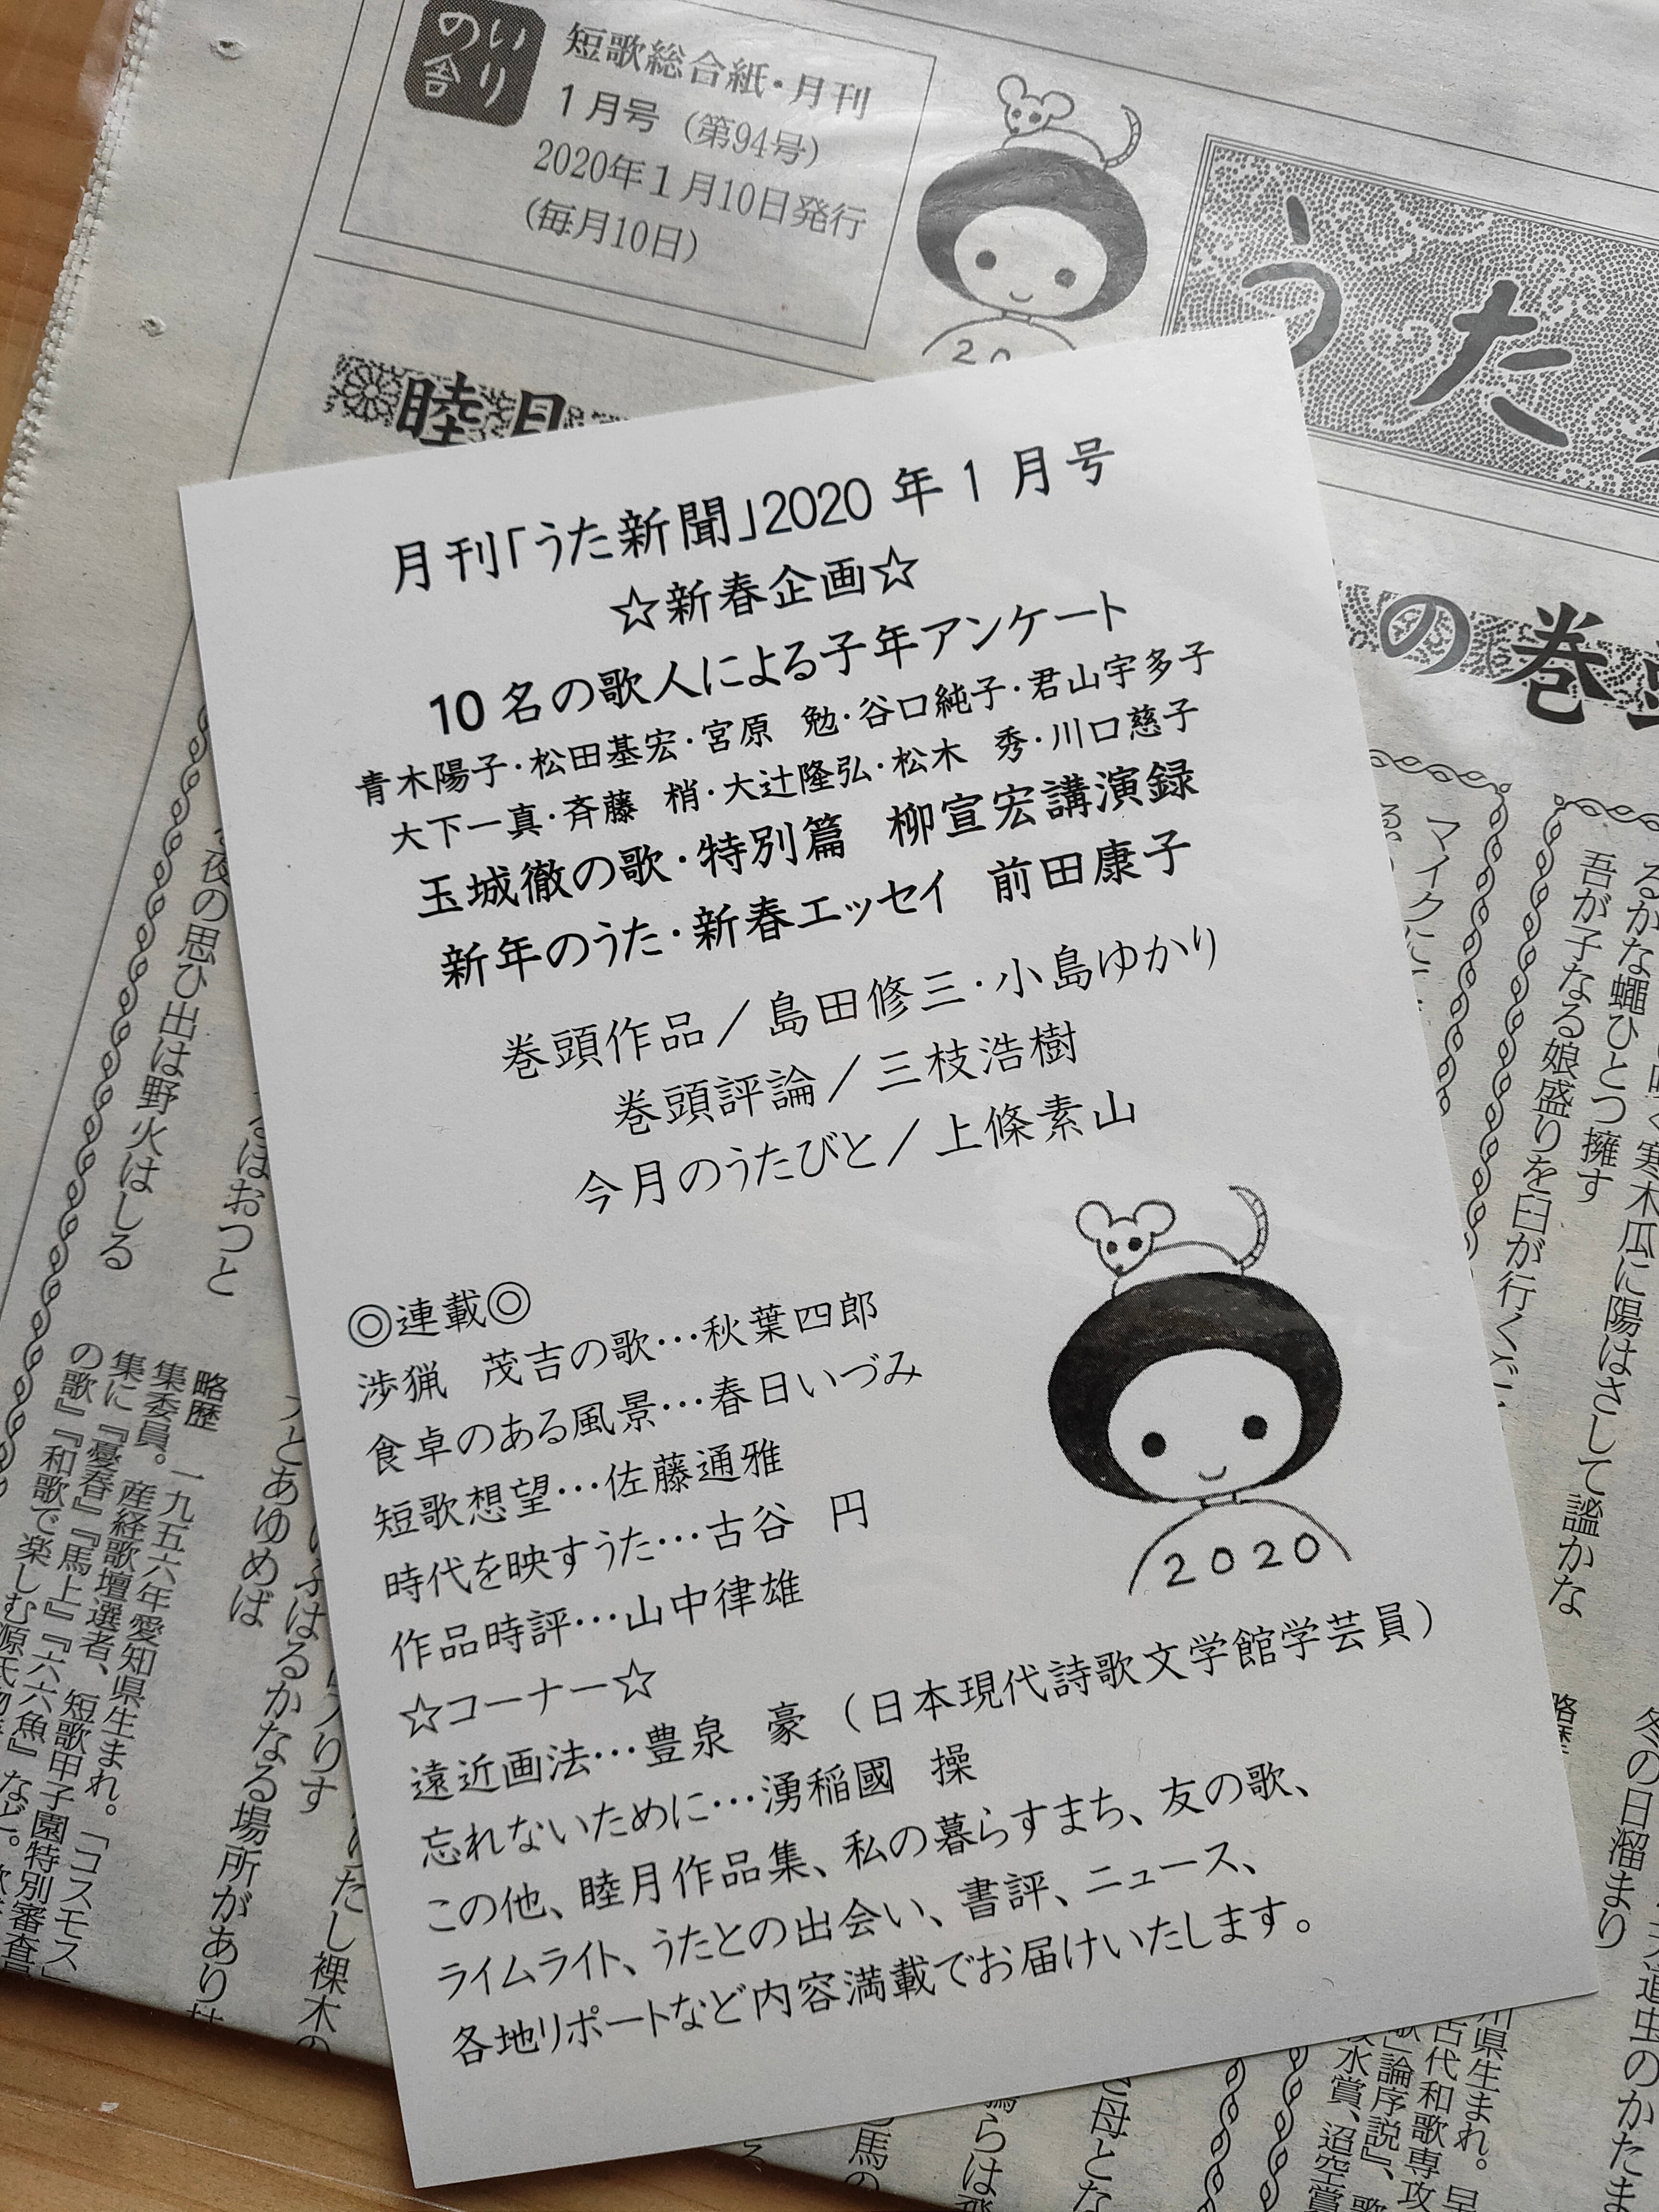 いりの舎
短歌総合紙・月刊
1月号（第94号）
2020年1月10日発行
（毎月10日）
うた
睦月
の巻
月刊「うた新聞」2020年1月号
☆新春企画☆
10名の歌人による子年アンケート
青木陽子・松田基宏・宮原　勉・谷口純子・君山宇多子
大下一真・斉藤　梢・大辻隆弘・松木　秀・川口慈子
玉城徹の歌・特別篇　柳宣宏講演録
新年のうた・新春エッセイ　前田康子
巻頭作品／島田修三・小島ゆかり
巻頭評論／三枝浩樹
今月のうたびと／上條素山
◎連載◎
渉猟　茂吉の歌…秋葉四郎
食卓のある風景…春日いづみ
短歌想望…佐藤通雅
時代を映すうた…古谷　円
作品時評…山中律雄
☆コーナー☆
遠近画法…豊泉　豪（日本現代詩歌文学館学芸員）
忘れないために…湧稲國　操
この他、睦月作品集、私の暮らすまち、友の歌、
ライムライト、うたとの出会い、書評、ニュース、
各地リポートなど内容満載でお届けいたします。
2020
寒木瓜に陽はさして謐かな
るかな蠅ひとつ擁す
吾が子なる娘盛りを臼が行く
マイクに
冬の日溜まり
道虫のかたま
夜の思ひ出は野火はしる
はおつと
とあゆめば
はるかなる場所があり
たし裸木の
略歴　一九五六年愛知県生まれ。「コスモス」
集委員。産経歌壇選者、短歌甲子園特別審査員
集に『憂春』『馬上』『六六魚』など。
の歌』『和歌で楽しむ源氏物
略歴
川県生まれ。早
古代和歌専攻
歌」論序説』、
水賞、迢空賞
母とな
らは
馬の